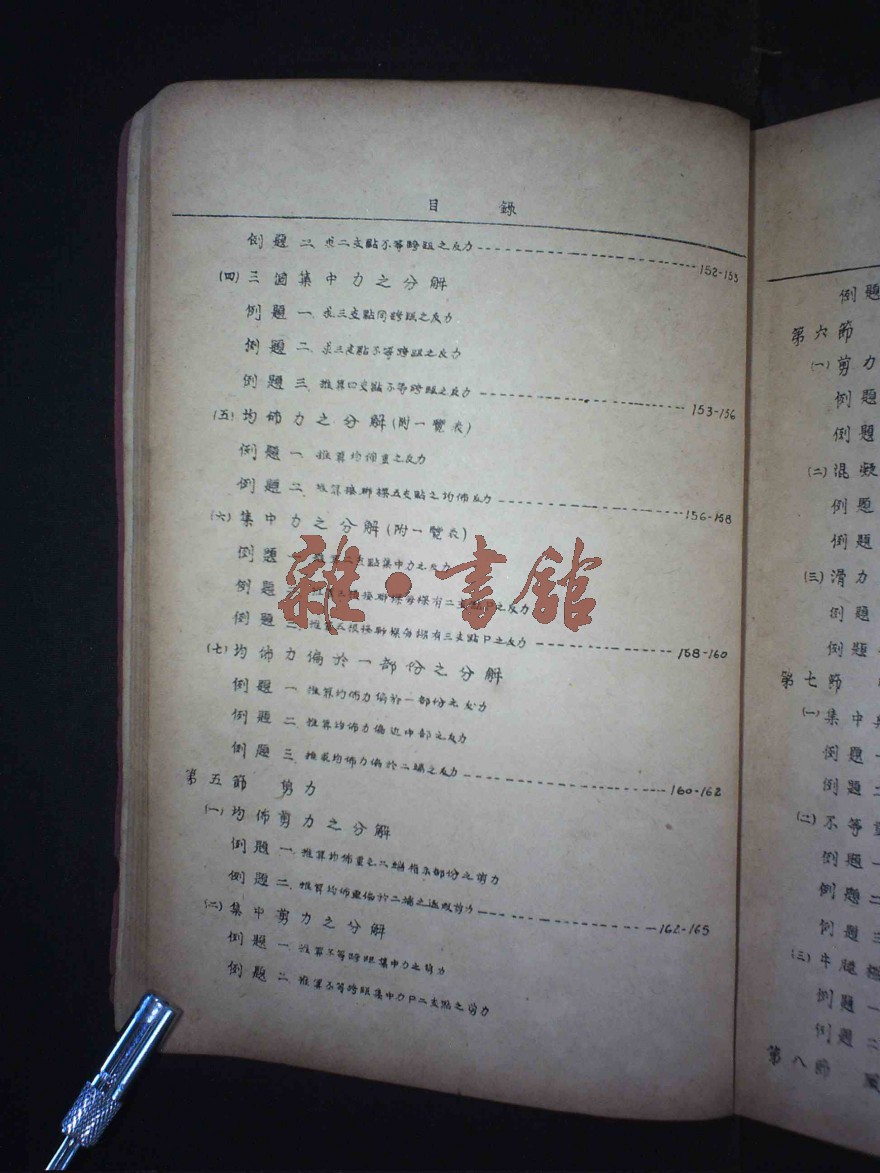 目 錄
例題 二 求二支點不等跨距之反力 152-153
(四) 三個集中力之分解
例題 一 求三支點同跨距之反力
例題 二 求三支點不等跨距之反力
例題 三 推算四支點不等跨距之反力 153-156
(五) 均佈力之分解(附一覽表)
例題 一 推算均佈重之反力
例題 二 推算接聯樑五支點之均佈反力 156-158
(六) 集中力之分解(附一覽表)
例題 一 支點集中力之反力
例題 接聯樑每樑有二支點P之反力
例題 三 推算五根接聯樑每樑有三支點P之反力 158-160
(七) 均佈力偏於一部份之分解
例題 一 推算均佈力偏於一部份之反力
例題 二 推算均佈力偏近中部之反力
例題 三 推算均佈力偏於二端之反力 160-162
第五節 剪力
(一) 均佈剪力之分解
例題 一 推算均佈重之二端指示部份之剪力
例題 二 推算均佈重偏於二端之剪力 162-165
(二) 集中剪力之分解
例題 一 推算不等跨距集中力之剪力
例題 二 推算不等跨距集中力P二支點之剪力
雜·書館
例題
第六節
(一) 剪力
例題
例題
(二) 混凝
例題
例題
(三) 滑力
例題
例題
第七節
(一) 集中
例題 一
例題 二
(二) 不等
例題 一
例題 二
例題 三
(三) 牛腿
例題 一
例題 二
第八節